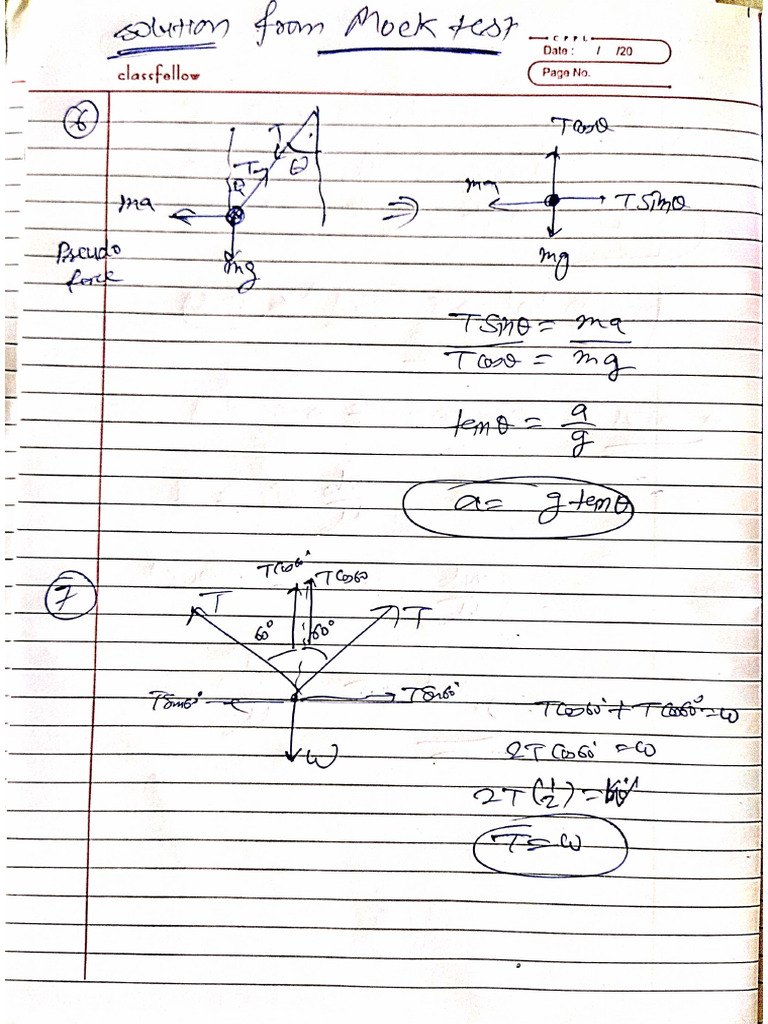 solution from Mock test
CPPL
Date : / /20
Page No.
classfellow
6
T
T
θ
θ
ma
mg
Pseudo
force
⇒
Tcosθ
ma
T Sinθ
mg
T Sinθ = ma
T cosθ = mg
tanθ = a/g
a = g tanθ
7
Tcos60° Tcos60
T
60° 60°
T
Tsin60°
Tsin60°
W
Tcos60° + Tcos60° = W
2T cos60° = W
2T (1/2) = W
T = W